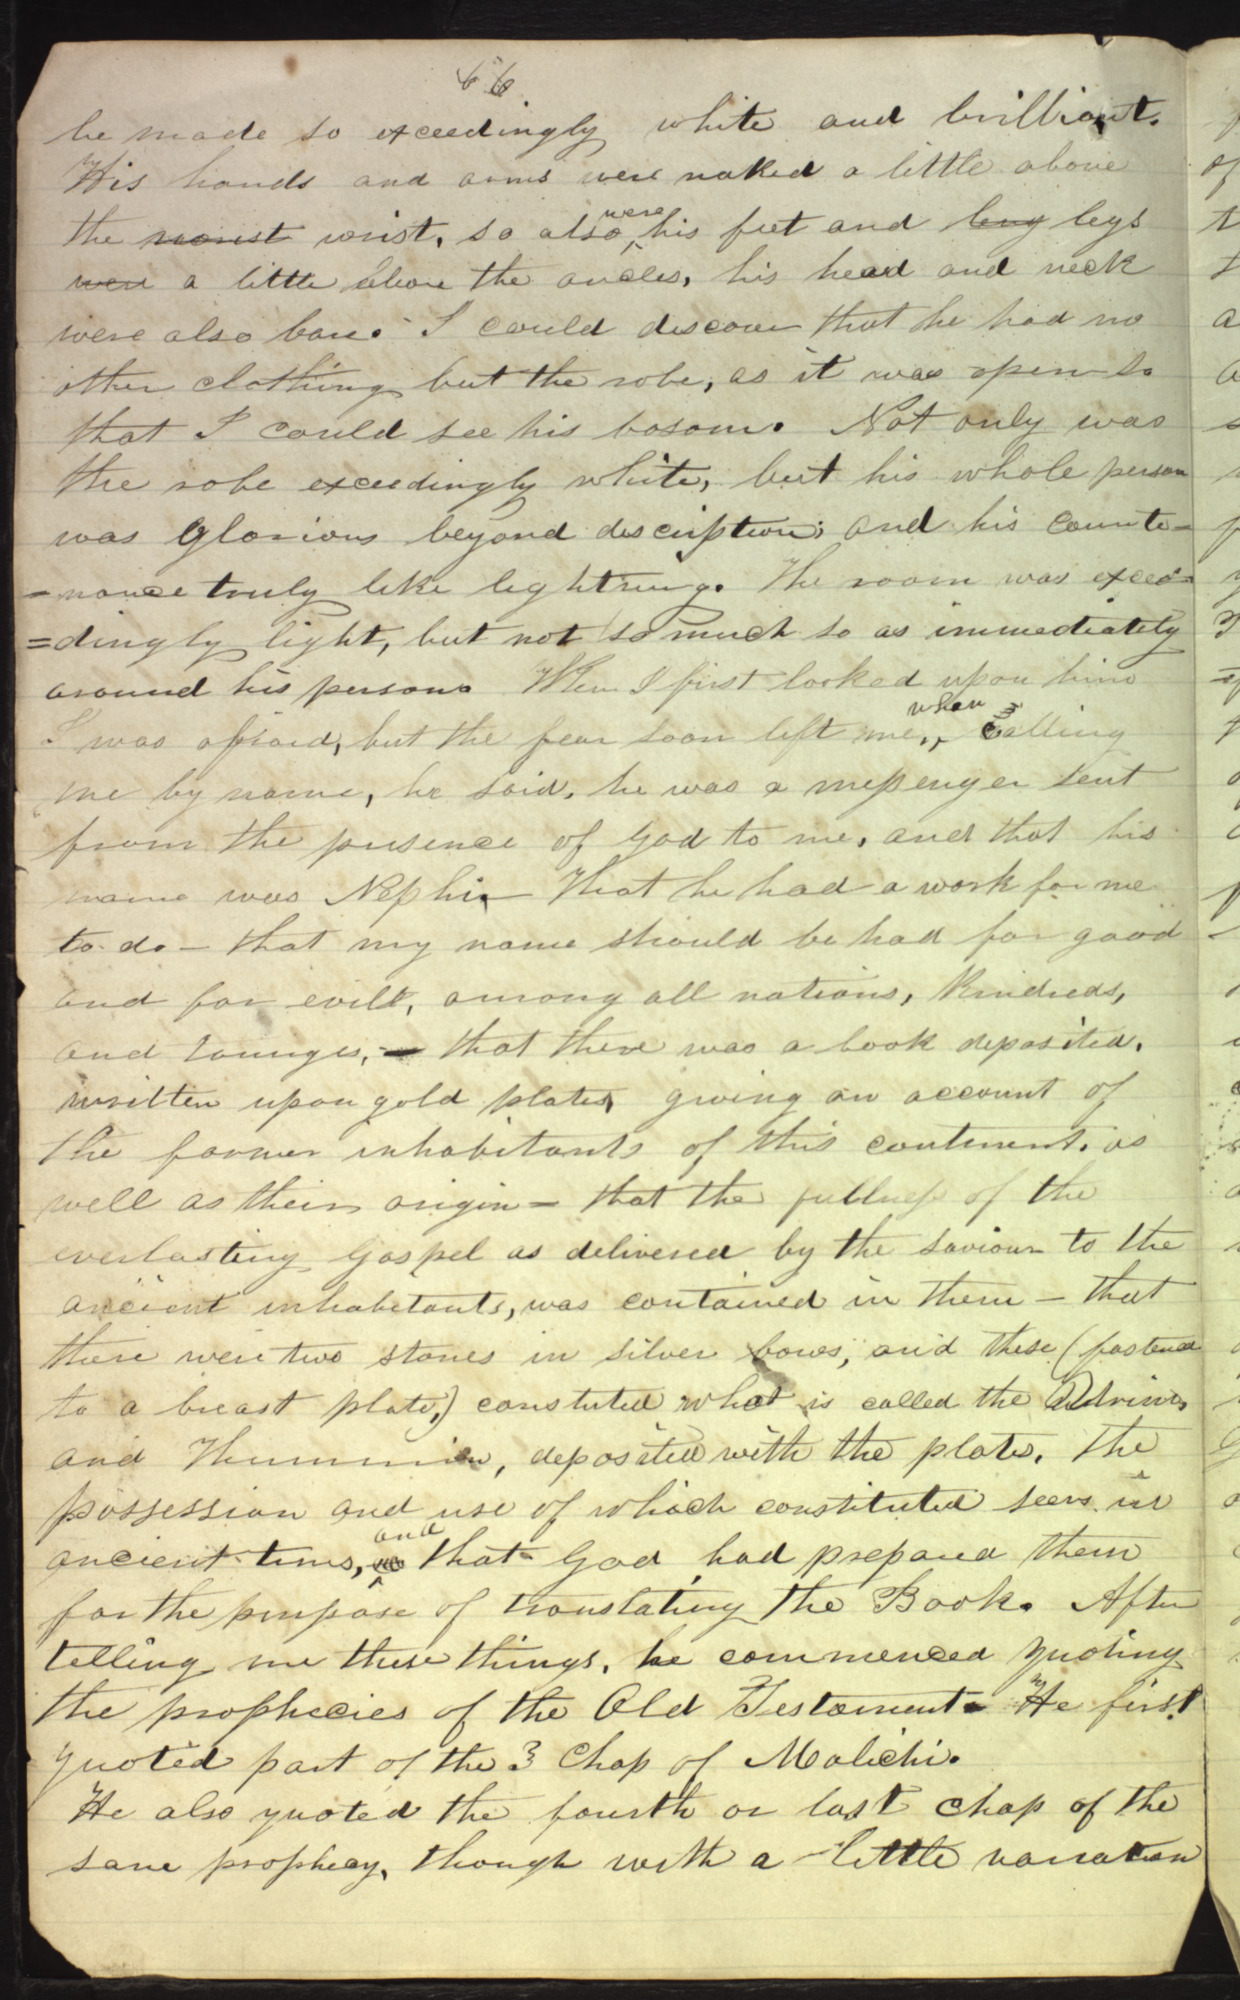 66
be made so exceedingly white and brilliant.
His hands and arms were naked a little above
the worist wrist, so also were his feet and leng legs
were a little above the ancles, his head and neck
were also bare. I could discover that he had no
other clothing but the robe, as it was open so
that I could see his bosom. Not only was
the robe exceedingly white, but his whole person
was glorious beyond description, and his counte-
-nance truly like lightning. The room was excee=
=dingly light, but not so much so as immediately
around his person. When I first looked upon him
I was afraid, but the fear soon left me, when calling
me by name, he said, he was a messenger sent
from the presence of God to me, and that his
name was Nephi. That he had a work for me
to do - that my name should be had for good
and for evill, among all nations, kindreds,
and tounges, - that there was a book deposited,
written upon gold plates, giving an account of
the former inhabitants of this continent, as
well as their origin - that the fullness of the
everlasting gospel as delivered by the saviour to the
ancient inhabitants, was contained in them - that
there were two stones in silver bows, and these (fastened
to a breast plate,) constuted what is called the Udrim,
and Thummim, deposited with the plates. The
possession and use of which constituted seers in
ancient times, and that God had prepared them
for the purpose of translating the Book. After
telling me these things, he commenced quoting
the prophecies of the Old Testament. He first
quoted part of the 3 Chap of Malichi.
He also quoted the fourth or last chap of the
same prophecy, though with a little variation